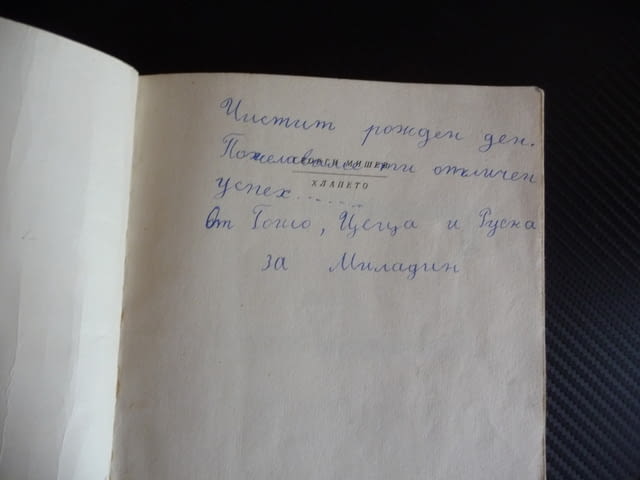 Чистит рожден ден.
Пожелаваме ти отличен
ГЕОРГИ МИШЕВ
ХЛАПЕТО
успех.......
от Гошо, Цеца и Руска
за Миладин